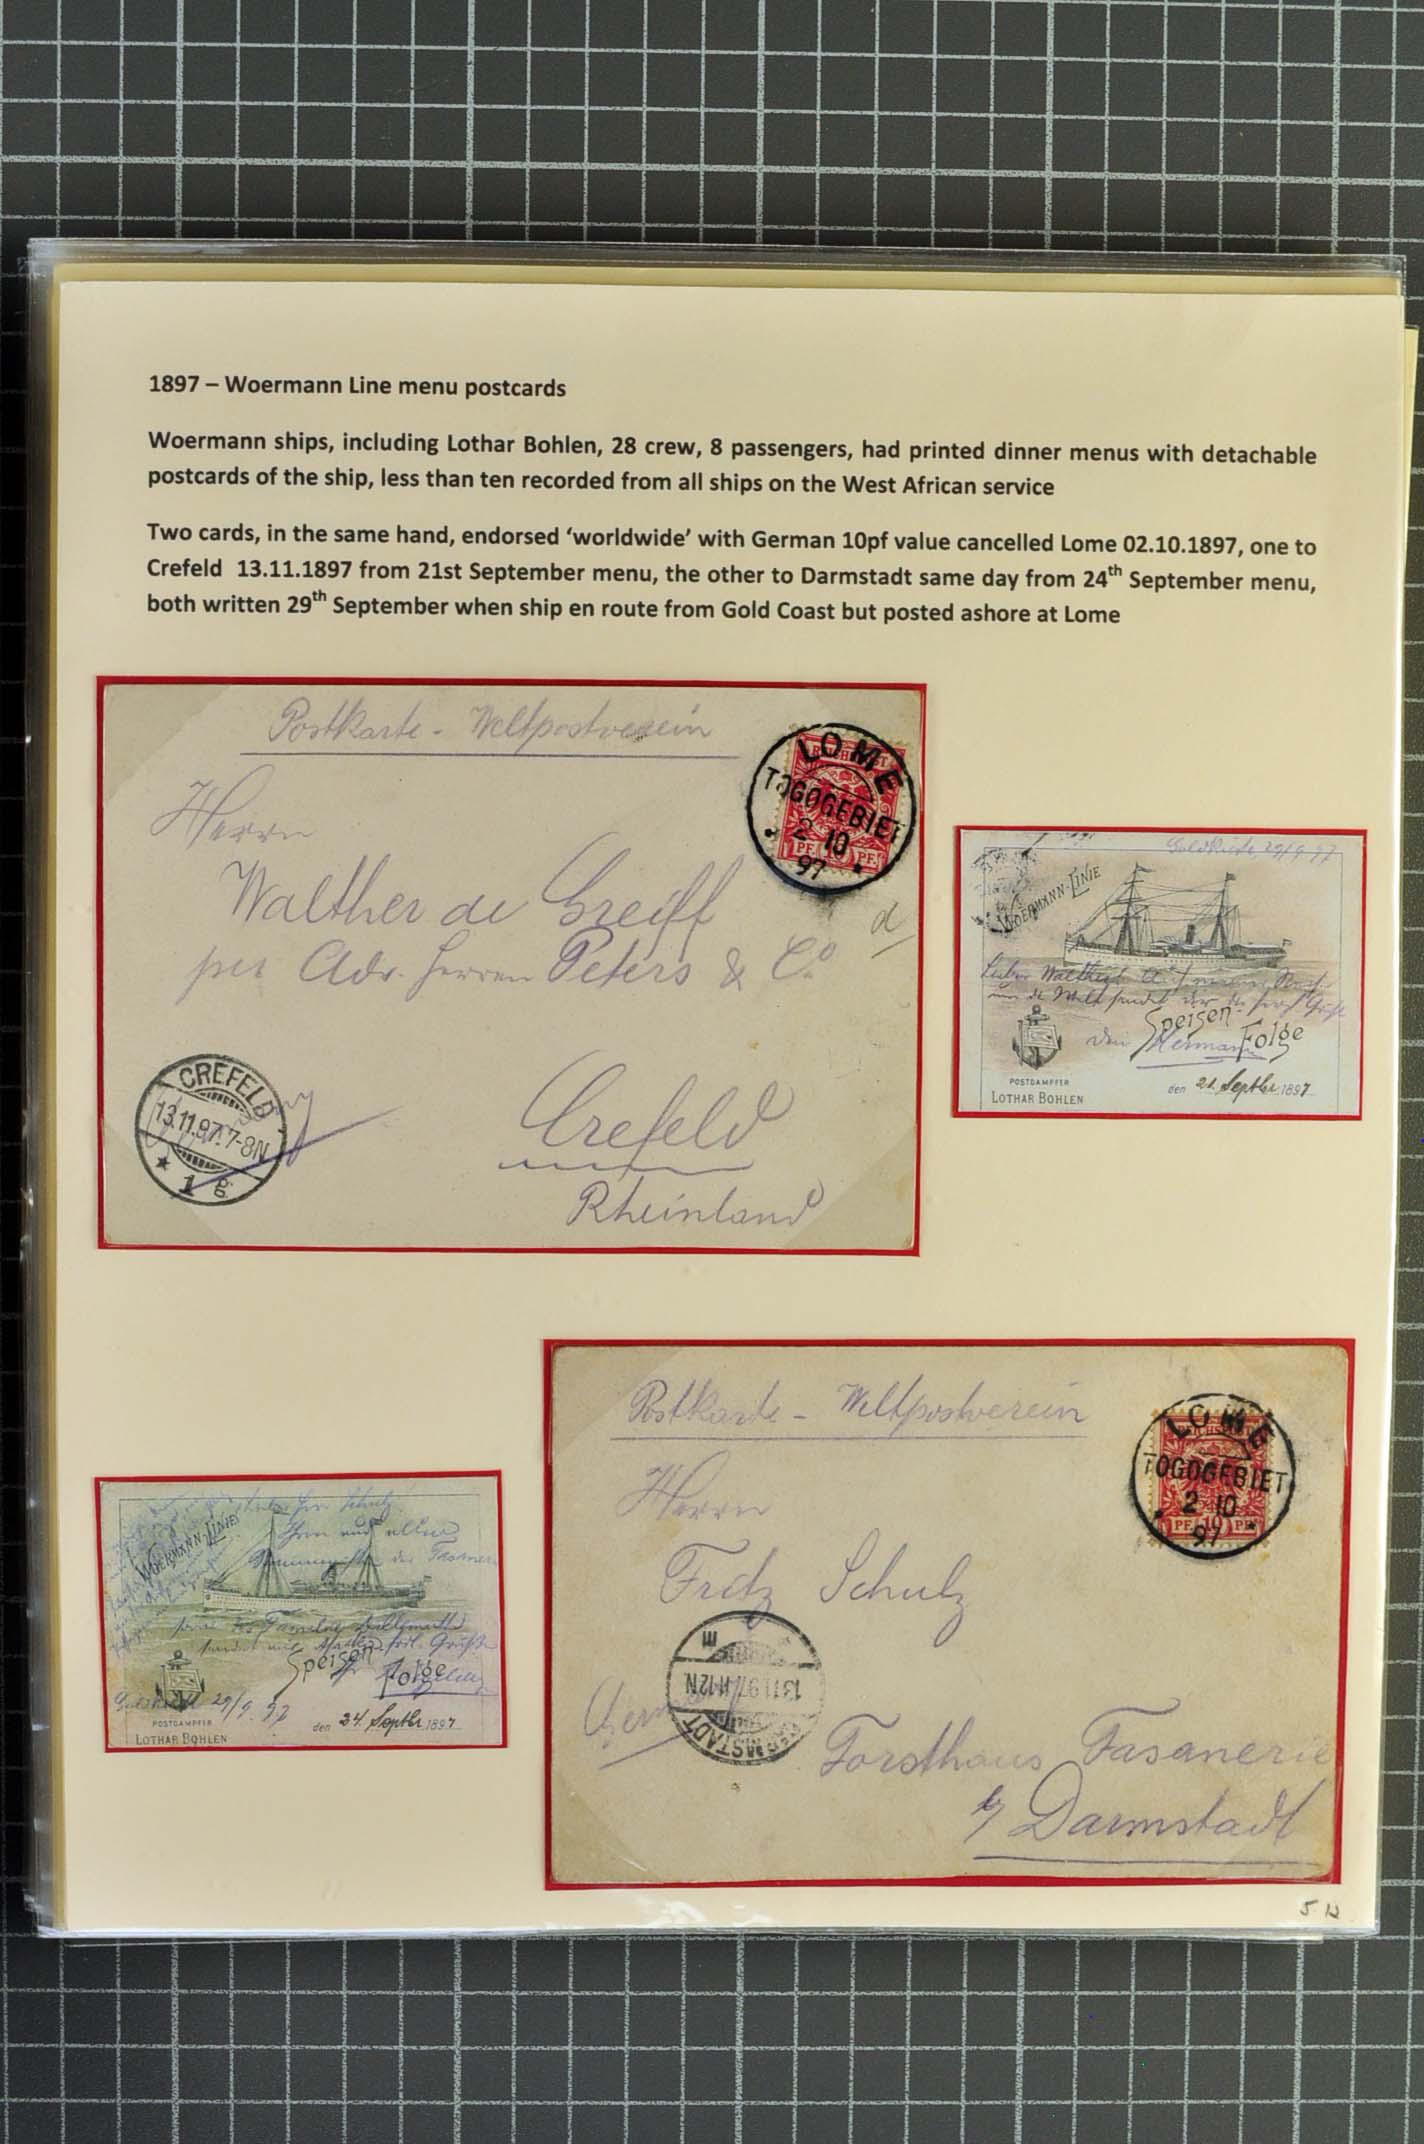 1897 – Woermann Line menu postcards
Woermann ships, including Lothar Bohlen, 28 crew, 8 passengers, had printed dinner menus with detachable
postcards of the ship, less than ten recorded from all ships on the West African service
Two cards, in the same hand, endorsed ‘worldwide’ with German 10pf value cancelled Lome 02.10.1897, one to
Crefeld 13.11.1897 from 21st September menu, the other to Darmstadt same day from 24th September menu,
both written 29th September when ship en route from Gold Coast but posted ashore at Lome
Postkarte - Weltpostverein
LOME
TOGOGEBIET
2 10
97
PF. PF.
Herrn
Walther de Greiff
per Adr. Herren Peters & Co
d
CREFELD
13.11.97.7-8N
1 g
Crefeld
Rheinland
Goldküste, 29/9 97
WOERMANN-LINIE
Lieber Walther! Auf meiner
um die Welt sendet dir die
Speisen-
Folge
dein Hermann
POSTDAMPFER
LOTHAR BOHLEN
den 21. Septbr 1897
Postkarte - Weltpostverein
LOME
TOGOGEBIET
2 10
97
PF. 10 PF.
Herrn
Fritz Schulz
13.11.97.11-12N
DARMSTADT
Forsthaus Fasanerie
b/ Darmstadt
Herr Schulz
WOERMANN-LINIE
Ihnen und allen
der
Familie
sendet
Speisen
Folge
29/9. 97
POSTDAMPFER
LOTHAR BOHLEN
den 24. Septbr 1897
5 12